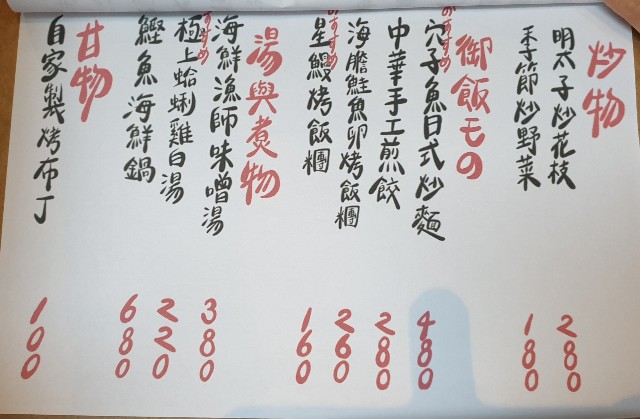 炒物
明太子炒花枝
280
季節炒野菜
180
御飯もの
おすすめ
穴子魚日式炒麵
480
中華手工煎餃
280
海膽鮭魚卵烤飯糰
260
おすすめ
星鰻烤飯糰
160
湯與煮物
海鮮漁師味噌湯
380
おすすめ
極上蛤蜊雞白湯
220
鰹魚海鮮鍋
680
甘物
自家製烤布丁
100